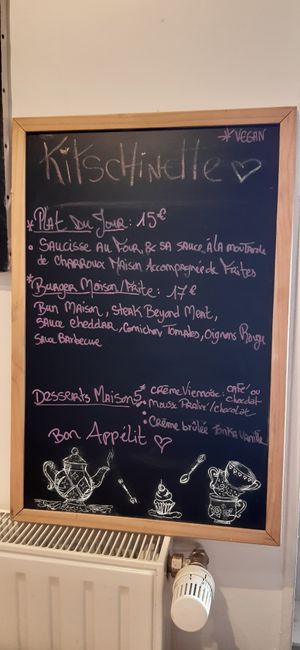 * VEGAN
KitSCHinette
* Plat Du Jour : 15€
• Saucisse au Four, & sa sauce à la moutarde
de Charroux Maison Accompagnée de Frites
* Burger Maison/Frite : 17€
Bun Maison, Steak Beyond Meat,
sauce cheddar, Cornichon Tomates, Oignons Rouge
sauce Barbecue
Desserts Maison 5 * crème Viennoise : café ou chocolat
• Mousse Pralin/chocolat
• Crème brûlée Tonka Vanille
Bon Appétit